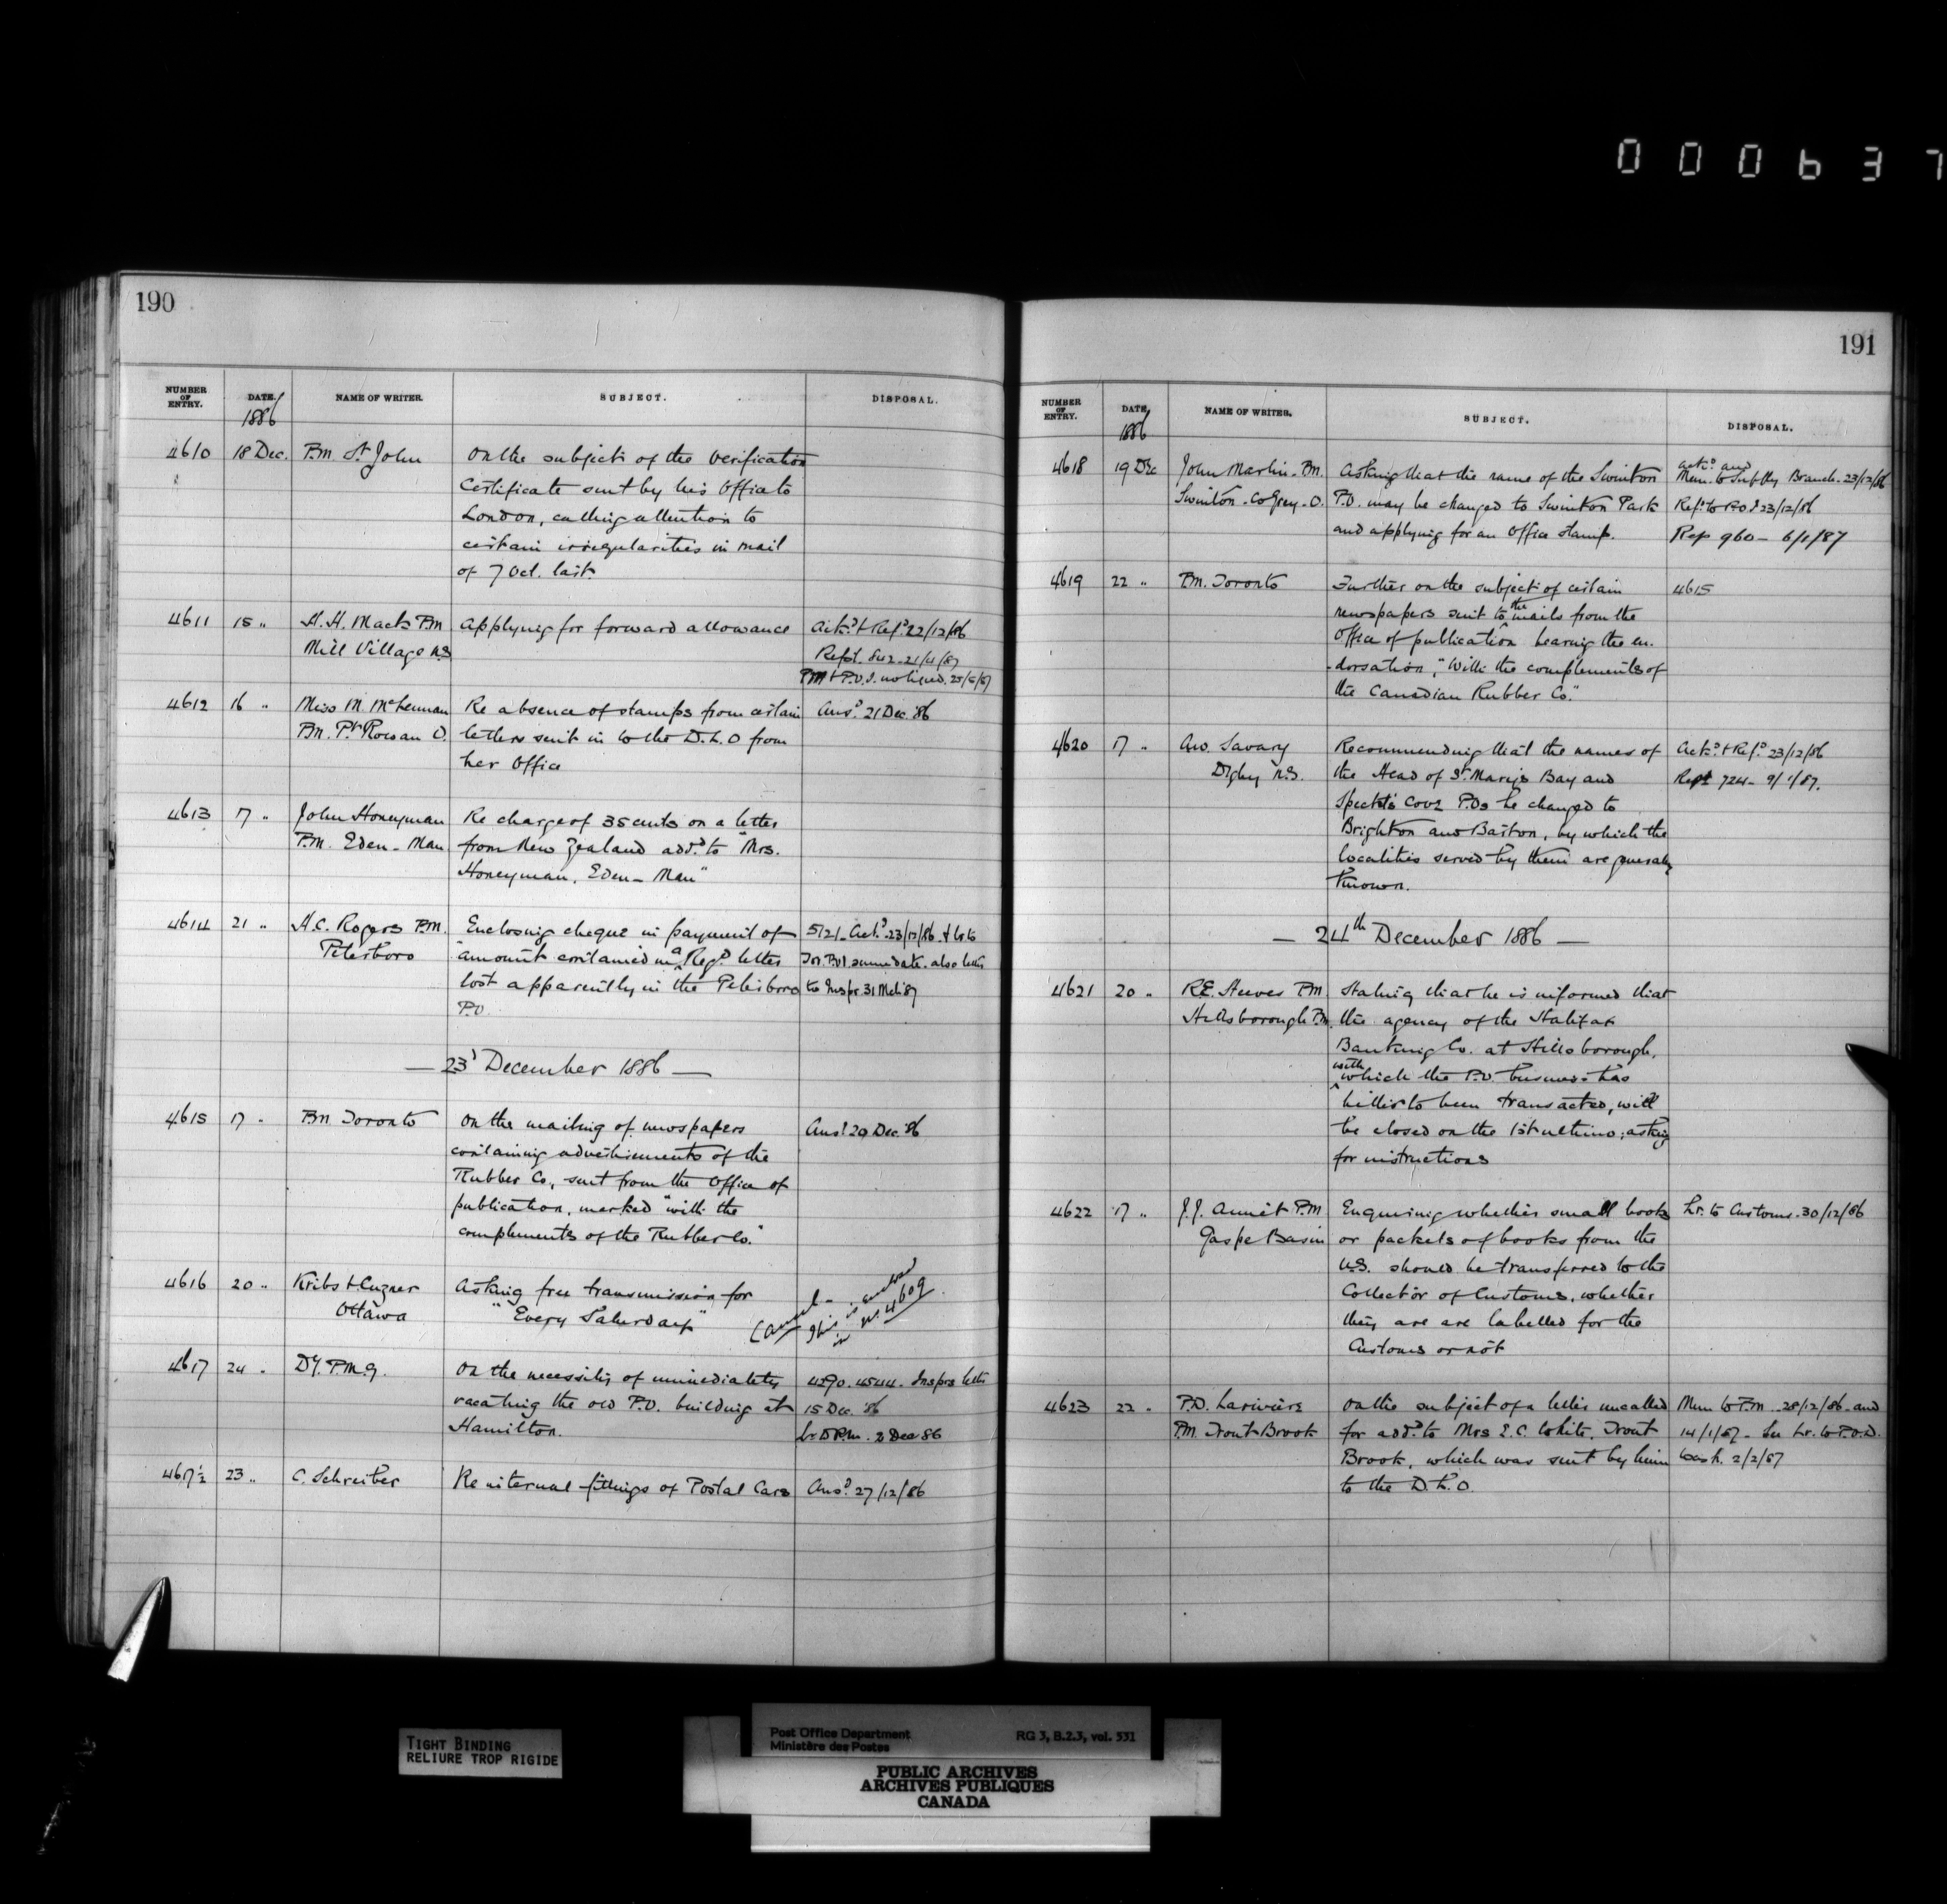 000637
190
NUMBER OF ENTRY. DATE. NAME OF WRITER. SUBJECT. DISPOSAL.
1886
4610 18 Dec. P.M. St John On the subject of the verification
Certificate sent by his Office to
London, calling attention to
certain irregularities in mail
of 7 Oct. last.
4611 15 " H. H. Mack P.M. Applying for forward allowance Ack.d & Ref.d 22/12/86
Mill Village N.S.
4612 16 " Miss M. McLennan Re absence of stamps from certain Ans.d 21 Dec. '86
P.M. Pt Rowan O. letters sent in to the D.L.O from
her Office
4613 17 " John Honeyman Re charge of 35 cents on a letter
P.M. Eden - Man from New Zealand add.d to "Mrs.
Honeyman, Eden - Man"
4614 21 " H.C. Rogers P.M. Enclosing cheque in payment of 5121 - Ack.d 23/12/86 & lr to
Peterboro amount contained in a Reg.d letter Tor. P.O.I. same date. also letter
lost apparently in the Peterboro to Inspr. 31 Mch '87
P.O.
— 23d December 1886 —
4615 17 " P.M. Toronto On the mailing of newspapers Ans.d 29 Dec. '86
containing advertisements of the
Rubber Co., sent from the Office of
publication, marked "with the
complements of the Rubber Co."
4616 20 " Kribs & Cuzner Asking free transmission for Cancel -
Ottawa "Every Saturday" This is entered
in No. 4609.
4617 24 " Dy. P.M.G. On the necessity of immediately 4290. 4544. Insprs letter
vacating the old P.O. building at 15 Dec. '86
Hamilton.
4617½ 23 " C. Schreiber Re internal fittings of Postal Cars Ans.d 27/12/86
191
NUMBER OF ENTRY. DATE. NAME OF WRITER. SUBJECT. DISPOSAL.
1886
4618 19 Dec John Martin - P.M. Asking that the name of the Swinton Ack.d and Mem. to Supply Branch - 23/12/86
Swinton - Co Grey - O. P.O. may be changed to Swinton Park Ref.d to P.O.I 23/12/86
and applying for an Office stamp. Rep 960 - 6/1/87
4619 22 " P.M. Toronto Further on the subject of certain 4615
newspapers sent to the mails from the
Office of publication bearing the en-
-dorsation, "With the complements of
the Canadian Rubber Co."
4620 17 " A.W. Savary Recommending that the names of Ack.d & Ref.d 23/12/86
Digby N.S. the Head of St. Mary's Bay and Rept 724 - 9/1/87.
Specht's Cove P.Os be changed to
Brighton and Barton, by which the
localities served by them are generally
known.
— 24th December 1886 —
4621 20 " R.E. Steeves P.M. Stating that he is informed that
Hillsborough the agency of the Halifax
Banking Co. at Hillsborough,
with which the P.O. business has
hitherto been transacted, will
be closed on the 1st ultimo; asking
for instructions
4622 17 " J.J. Annet P.M. Enquiring whether small books Lr. to Customs. 30/12/86
Gaspe Basin or packets of books from the
U.S. should be transferred to the
Collector of Customs, whether
they are are labelled for the
Customs or not
4623 22 " P.D. Lariviere On the subject of a letter uncalled Mem to P.M. 28/12/86. and
P.M. Trout Brook for add.d to Mrs E.C. White, Trout 14/1/87 - See Lr. to P.O.D.
Brook, which was sent by him Wash. 2/2/87
to the D.L.O.
TIGHT BINDING
RELIURE TROP RIGIDE
Post Office Department RG 3, B.2.3, vol. 531
Ministère des Postes
PUBLIC ARCHIVES
ARCHIVES PUBLIQUES
CANADA